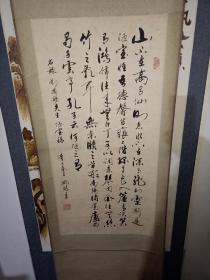 山不在高有仙則名水不在深有龍則靈斯是
陋室惟吾德馨苔痕上階綠草色入簾青談笑
有鴻儒往來無白丁可以調素琴閱金經無絲
竹之亂耳無案牘之勞形南陽諸葛廬西
蜀子雲亭孔子云何陋之有
右錄劉禹錫先生陋室銘